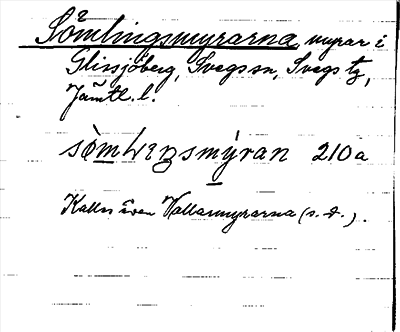 Sömlingsmyrarna, myrar i
Glissjöberg, Svegs sn, Svegs tg,
Jämtl. l.
sömlıŋsmýran 210a
Kallas även Vallarmyrarna (s. d.).